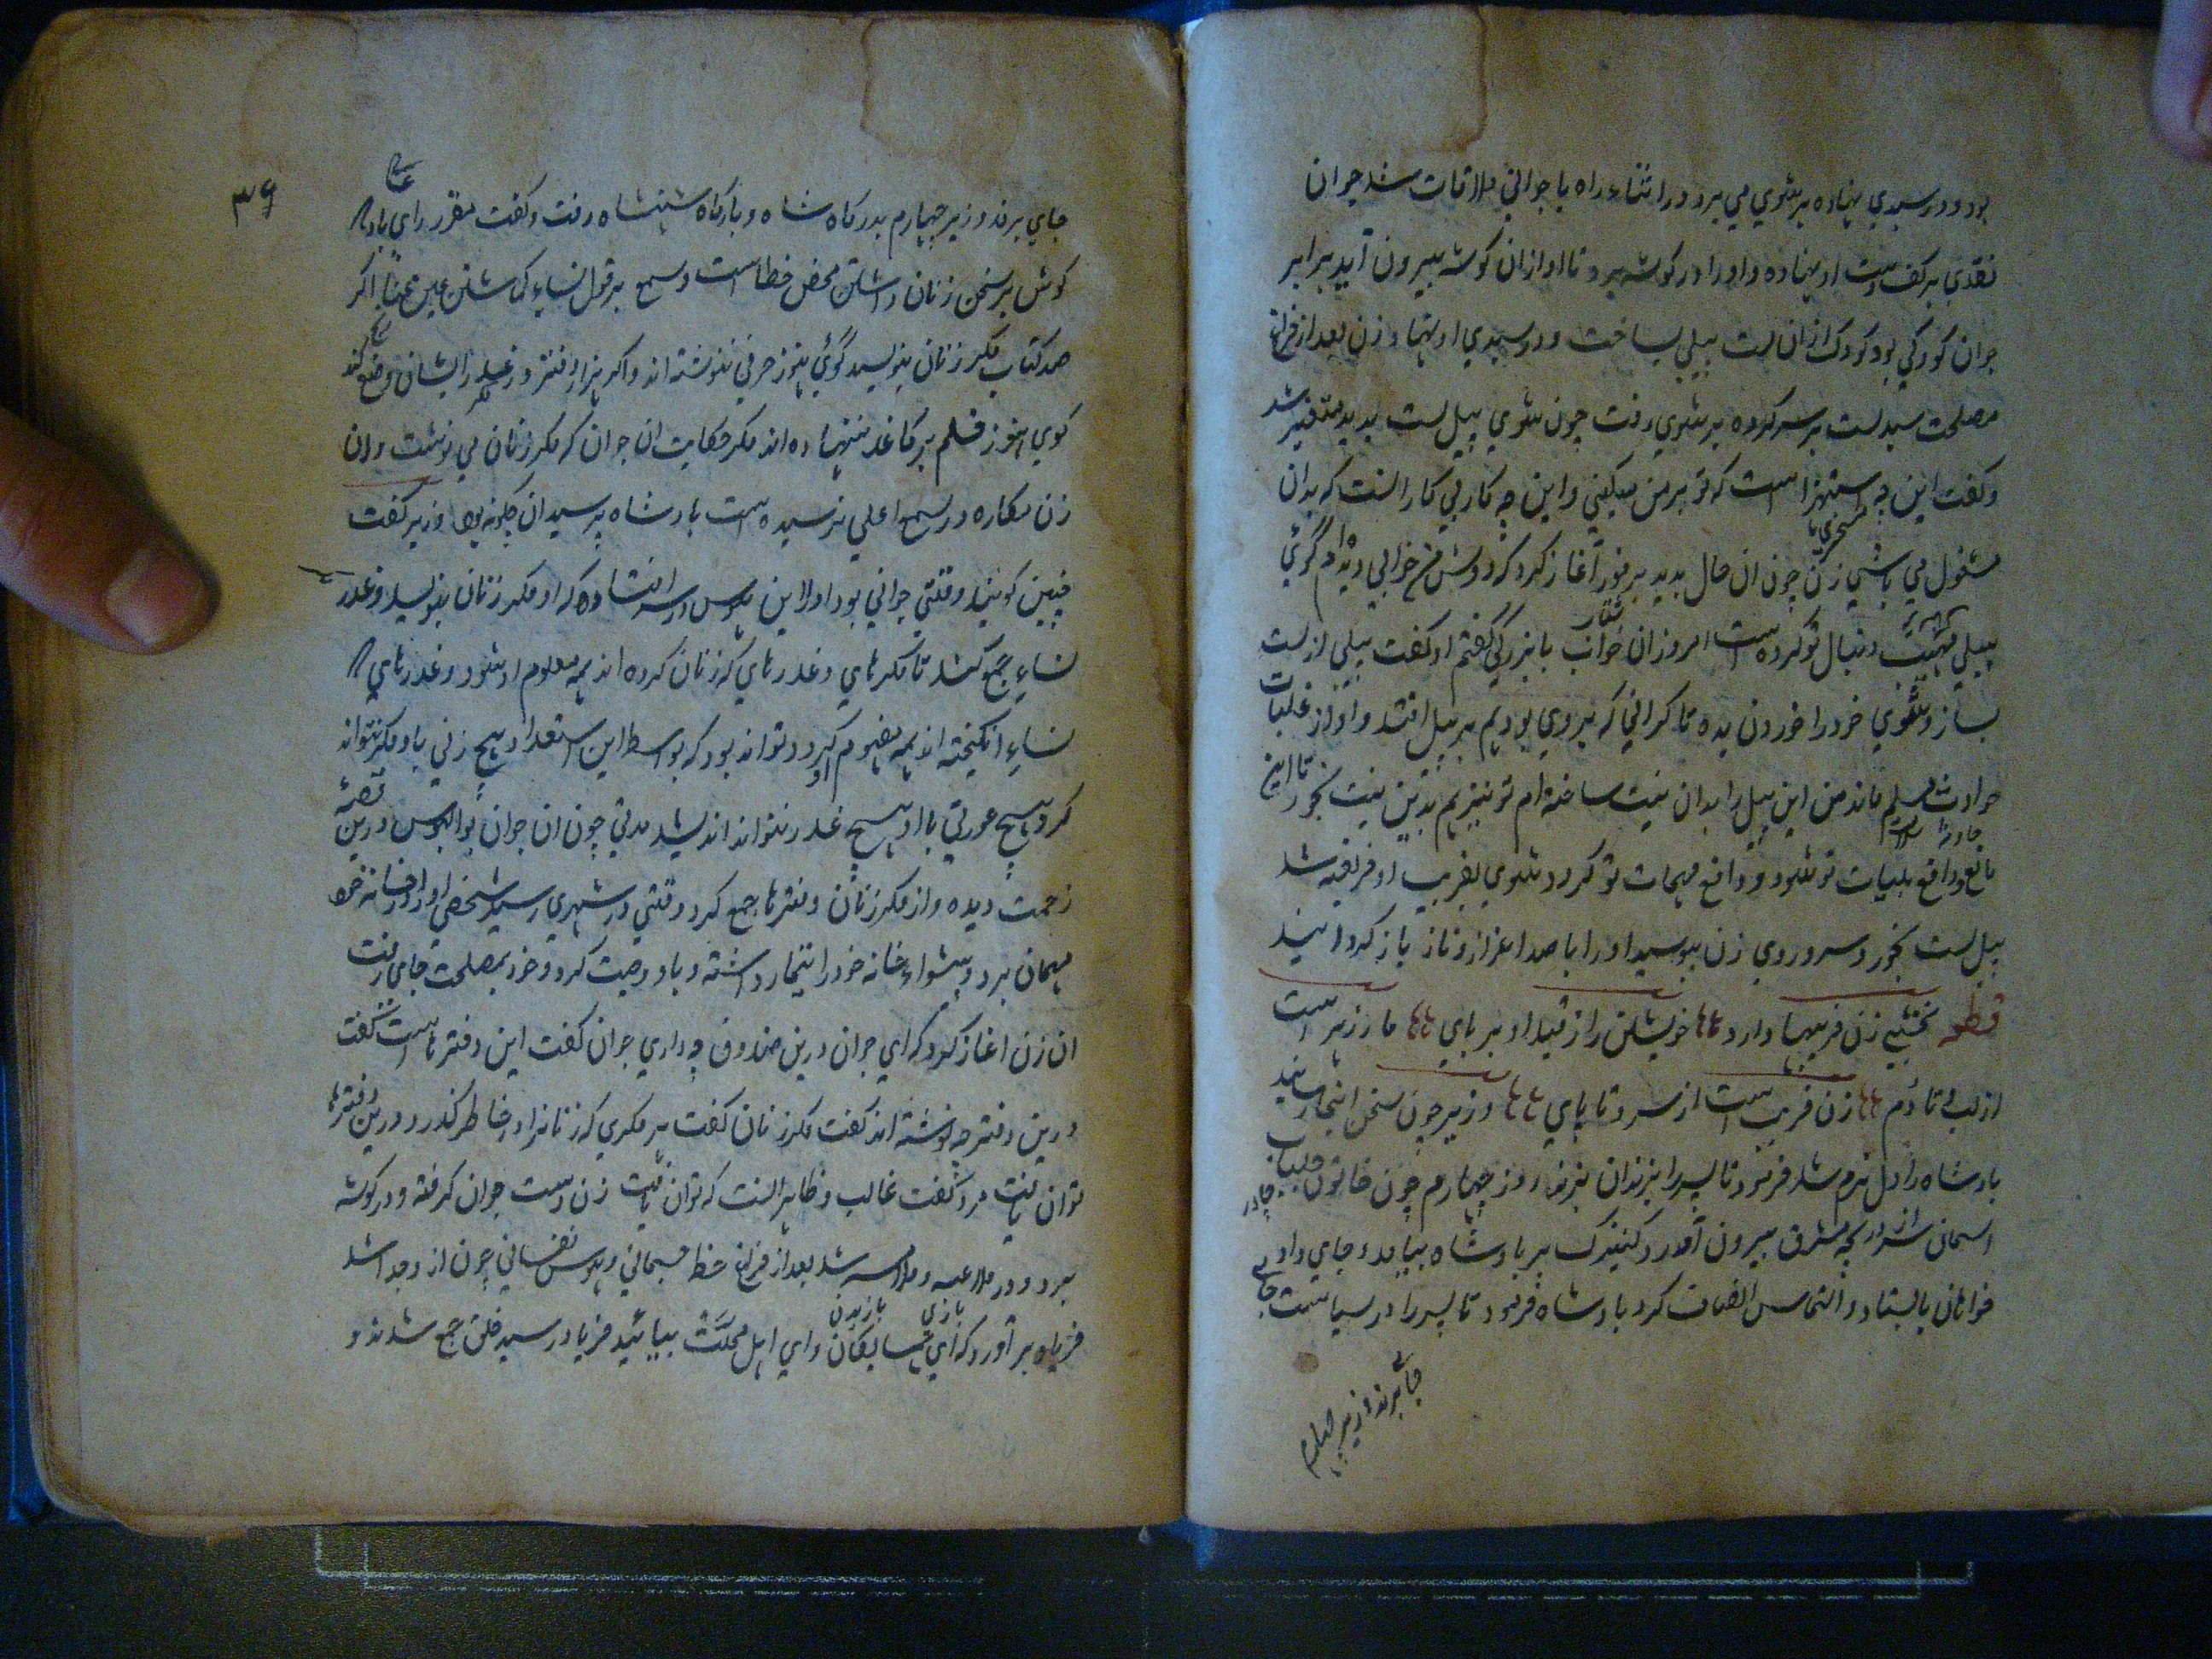 بود و در سبدی نهاده بر شوی می برد در اثناء راه با جوانی ملاقات شد جوان
نقدی بر کف دست او نهاده و او را در گوشه برد تا او ازان گوشه بیرون آید برابر
جوان کودکی بود کودک ازان پست پیلی بساخت و در سبدی او نهاد و زن بعد از فراغ
مصلحت سبد پست بر سر کرده بر شوی رفت چون شوی پیل پست بدید متغیر شد
و گفت این چه استهزا است که تو بر من میکنی و این چه کار بی کار انست که بدان
مسخری
مشغول می باشی زن چون ان حال بدید بر فور آغاز کرد که دوش من خوابی دیدم گوئی
پیلی مهیب دنبال تو کرده است امروز ان خواب با بزرگی گفتم او گفت پیلی از پست
بساز و شوی خود را خوردن بده تا گرانی که بروی بودیم بر پیل افتد و او از
حوادث مسلم ماند من این پیل را بدان نیت ساخته ام تو نیز هم بدین نیت بخور تا این
مانع و دافع بلیات تو شود و دافع مهمات تو گردد شوی بفریب او فریفته شد
پیل پست بخورد و سر و روی زن ببوسید او را با صد اعزاز و ناز باز گردانید
قطعه نخشبی زن فریبها دارد خویشتن را ز قید او بر بای مار زهر است
از لب تا دم زن فریب است از سر و تا پای وزیر چون سخن اینجا رسانید
بادشاه را دل نرم شد فرمود تا پسر را بزندان بردند روز چهارم چون خاتون
اسمان سر از دریچه مشرق بیرون آورد کنیزک بر بادشاه بیامد و جای داد
خواهان بایستاد و التماس انصاف کرد بادشاه فرمود تا پسر را در سیاست جای
جای برند وزیر چهارم
۳۶
جای برند وزیر چهارم بدرگاه شاه و بارگاه شهنشاه رفت و گفت مقرر رای بادشاه
گوش بر سخن زنان داشتن محض خطاست و سمع بر قول نساء گماشتن عین اگر
صد کتاب مکر زنان بنویسند گوئی هنوز حرفی ننوشته اند و اگر هزار دفتر در غدر ایشان وضع کنند
گوی هنوز قلم بر کاغذ ننهاده اند مگر حکایت ان جوان که مکر زنان می نوشت و ان
زن مکاره در سمع اعلی نرسیده است بادشاه پرسید ان چگونه بود وزیر گفت
چنین گویند وقتی جوانی بود او را این هوس در سر افتاد که او مکر زنان بنویسد و غدر
نساء جمع کند تا مکرهای و غدرهای که زنان کرده اند همه معلوم او شود و غدرهای
نساء انگیخته اند همه مفهوم او گردد تواند بود که بواسطه این استعداد هیچ زنی با او مکر نتواند
کرد و هیچ عورتی با او هیچ غدر نتواند اندیشد مدتی چون ان جوان بوالهوس درین
زحمت دیده و از مکر زنان دفترها جمع کرد وقتی در شهری رسید شخصی او را در خانه خود
مهمان برد و پیشواء خانه خود را تیمار داشته و باو وصیت کرد و خود بمصلحت جای رفت
ان زن اغاز کرد که ای جوان درین صندوق چه داری جوان گفت این دفترها است گفت
درین دفتر چه نوشته اند گفت مکر زنان گفت هر مکری که زنان را در خاطر گذرد درین دفترها
توان یافت مرد گفت غالب و ظاهر انست که توان یافت زن دست جوان گرفته و در گوشه
ببرد و در ملاعبه و ملامسه شد بعد از فراغ حظ جسمانی و هوس نفسانی چون از و جدا شد
بازی
فریاد بر آورد که ای همسایگان و ای اهل محلت بیائید فریاد رسید خلق جمع شدند و